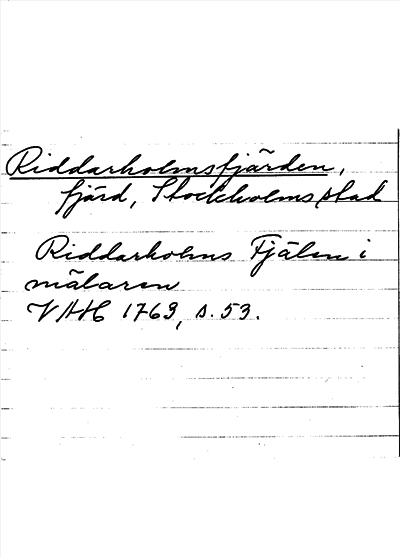 Riddarholmsfjärden,
fjärd, Stockholms stad
Riddarholms Fjälen i
mälaren
VAH 1769, s. 53.